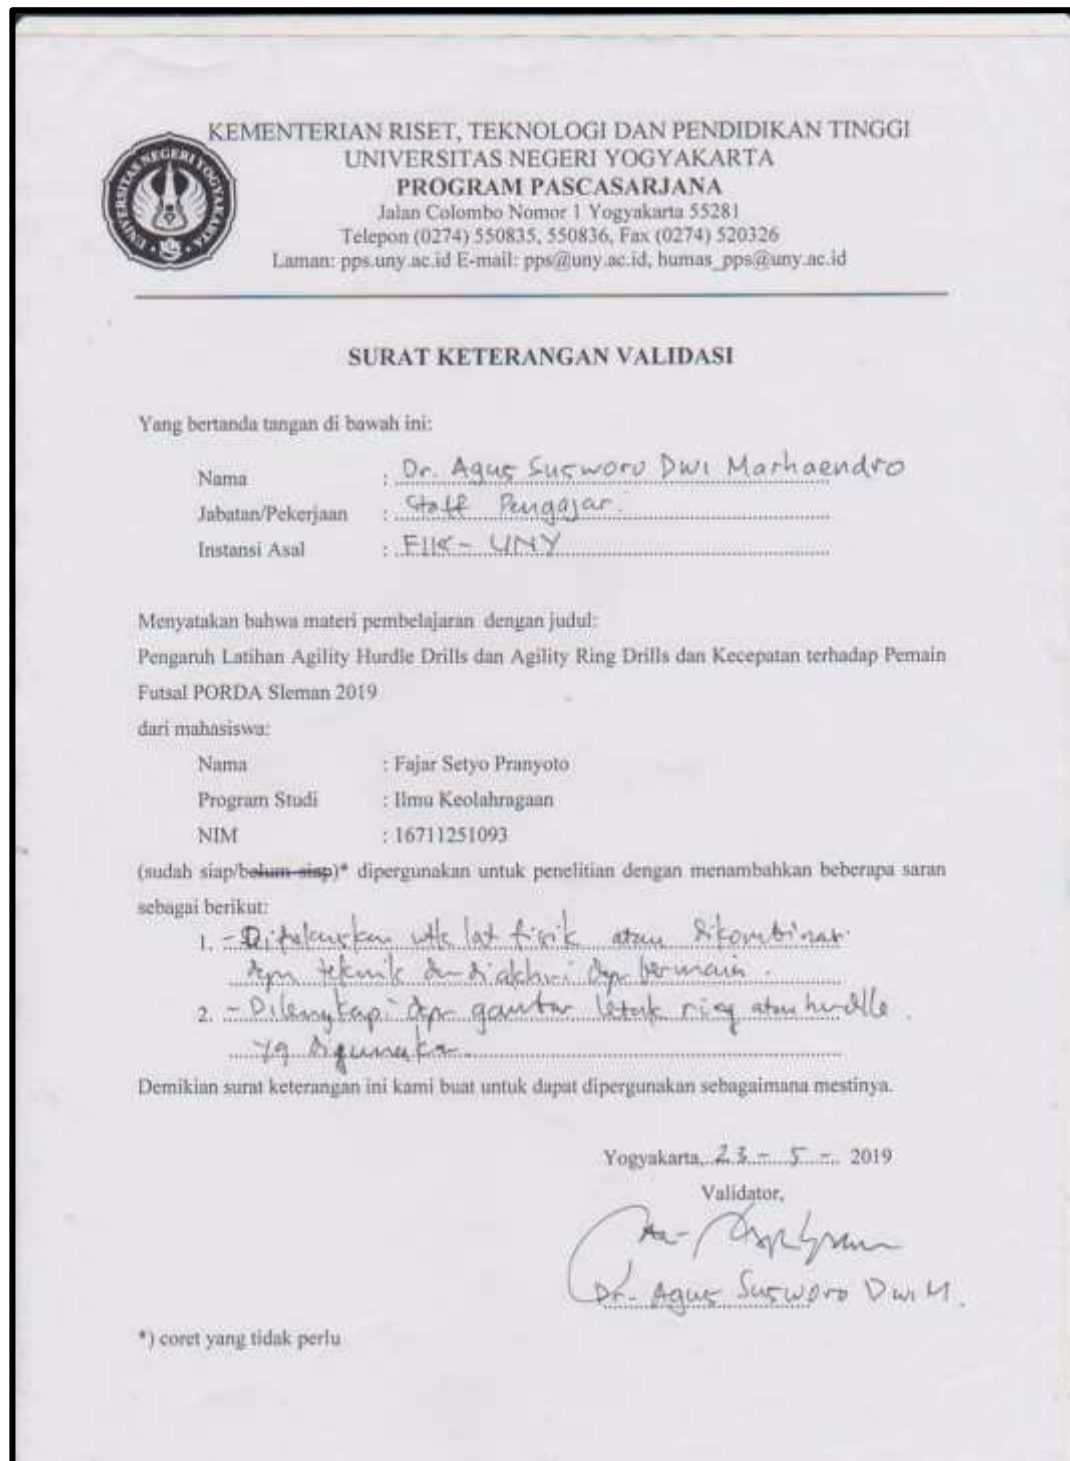 KEMENTERIAN RISET, TEKNOLOGI DAN PENDIDIKAN TINGGI
UNIVERSITAS NEGERI YOGYAKARTA
PROGRAM PASCASARJANA
Jalan Colombo Nomor 1 Yogyakarta 55281
Telepon (0274) 550835, 550836, Fax (0274) 520326
Laman: pps.uny.ac.id E-mail: pps@uny.ac.id, humas_pps@uny.ac.id
UNIVERSITAS NEGERI YOGYAKARTA
SURAT KETERANGAN VALIDASI
Yang bertanda tangan di bawah ini:
Nama : Dr. Agus Susworo Dwi Marhaendro
Jabatan/Pekerjaan : Staff Pengajar.
Instansi Asal : FIK - UNY
Menyatakan bahwa materi pembelajaran dengan judul:
Pengaruh Latihan Agility Hurdle Drills dan Agility Ring Drills dan Kecepatan terhadap Pemain
Futsal PORDA Sleman 2019
dari mahasiswa:
Nama : Fajar Setyo Pranyoto
Program Studi : Ilmu Keolahragaan
NIM : 16711251093
(sudah siap/belum siap)* dipergunakan untuk penelitian dengan menambahkan beberapa saran
sebagai berikut:
1. - utk lat fisik atau dikombinasi
dgn teknik dan diakhiri dgn bermain.
2. - Dilengkapi dgn gambar letak ring atau hurdle.
yg digunakan.
Demikian surat keterangan ini kami buat untuk dapat dipergunakan sebagaimana mestinya.
Yogyakarta, 23 - 5 - 2019
Validator,
Dr. Agus Susworo Dwi M.
*) coret yang tidak perlu